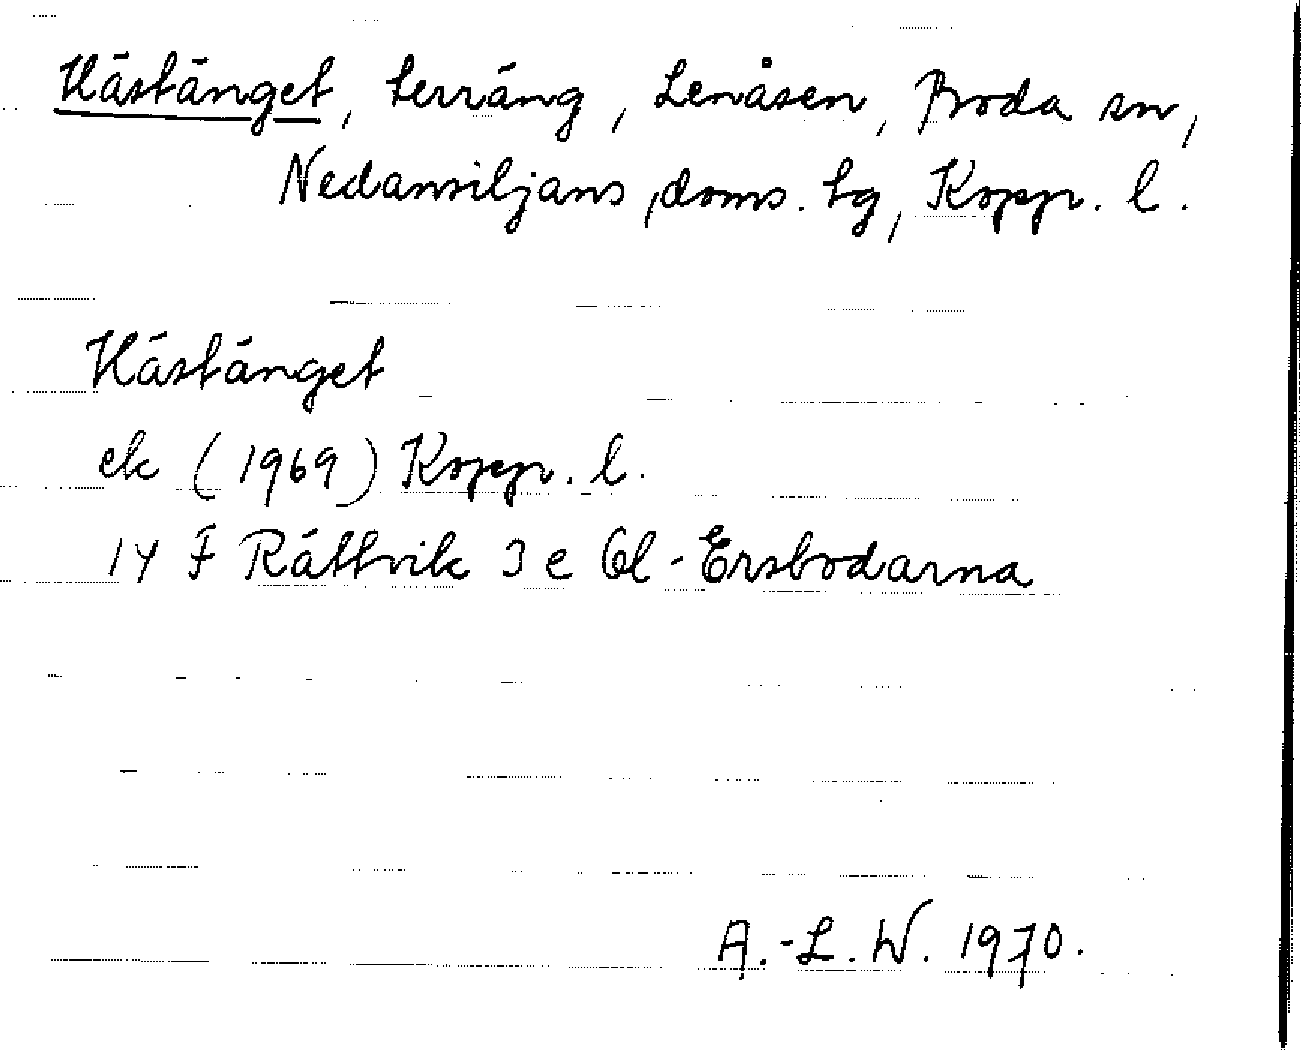 Hästänget, terräng, Lenåsen, Boda sn,
Nedansiljans doms. tg, Kopp. l.
Hästänget
ek (1969) Kopp. l.
14 F Rättvik 3 e Gl-Ersbodarna
A.-L. W. 1970.